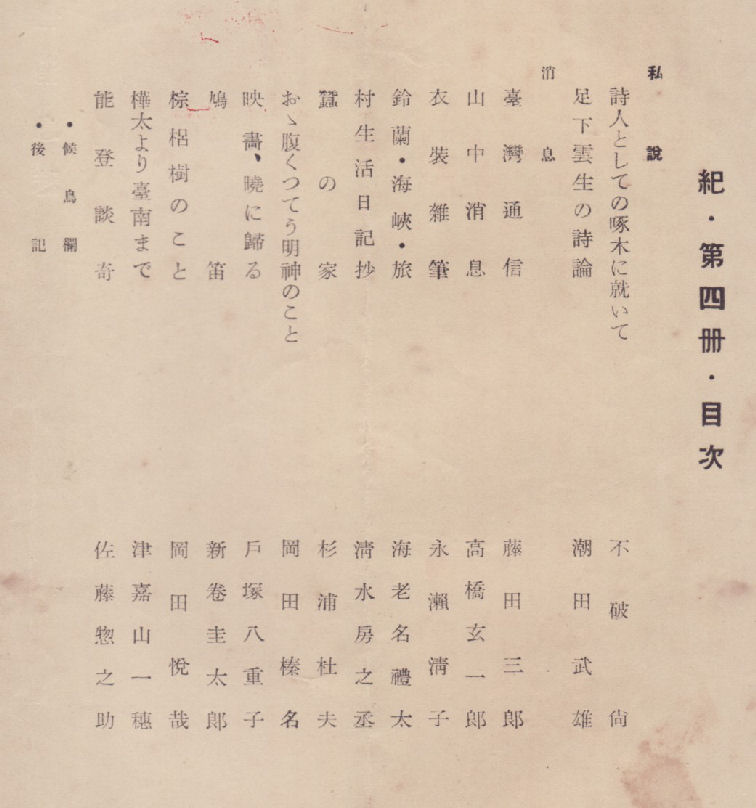 紀・第四册・目次
私說
詩人としての啄木に就いて 不破尙
足下雲生の詩論 潮田武雄
消息
臺灣通信 藤田三郞
山中消息 高橋玄一郞
衣裝雜筆 永瀨淸子
鈴蘭・海峽・旅 海老名禮太
村生活日記抄 淸水房之丞
蠶の家 杉浦杜夫
おゝ腹くつてう明神のこと 岡田榛名
映畵、曉に歸る 戶塚八重子
鳩笛 新卷圭太郞
棕梠樹のこと 岡田悅哉
樺太より臺南まで 津嘉山一穗
能登談奇 佐藤惣之助
・候鳥欄
・後記